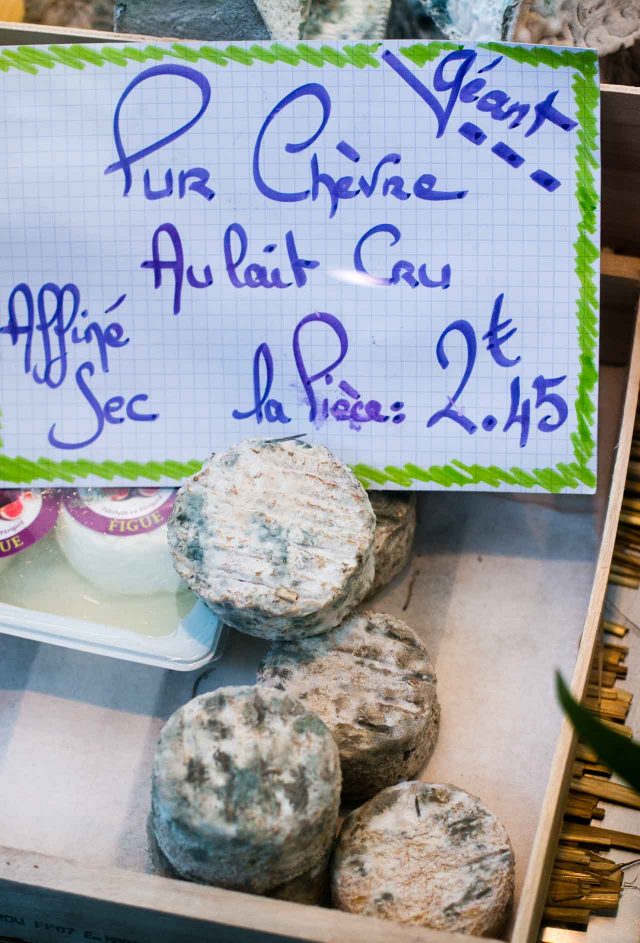 géant
Pur Chèvre
Au lait Cru
Affiné
Sec
la Pièce: 2.€45
FIGUE
UE